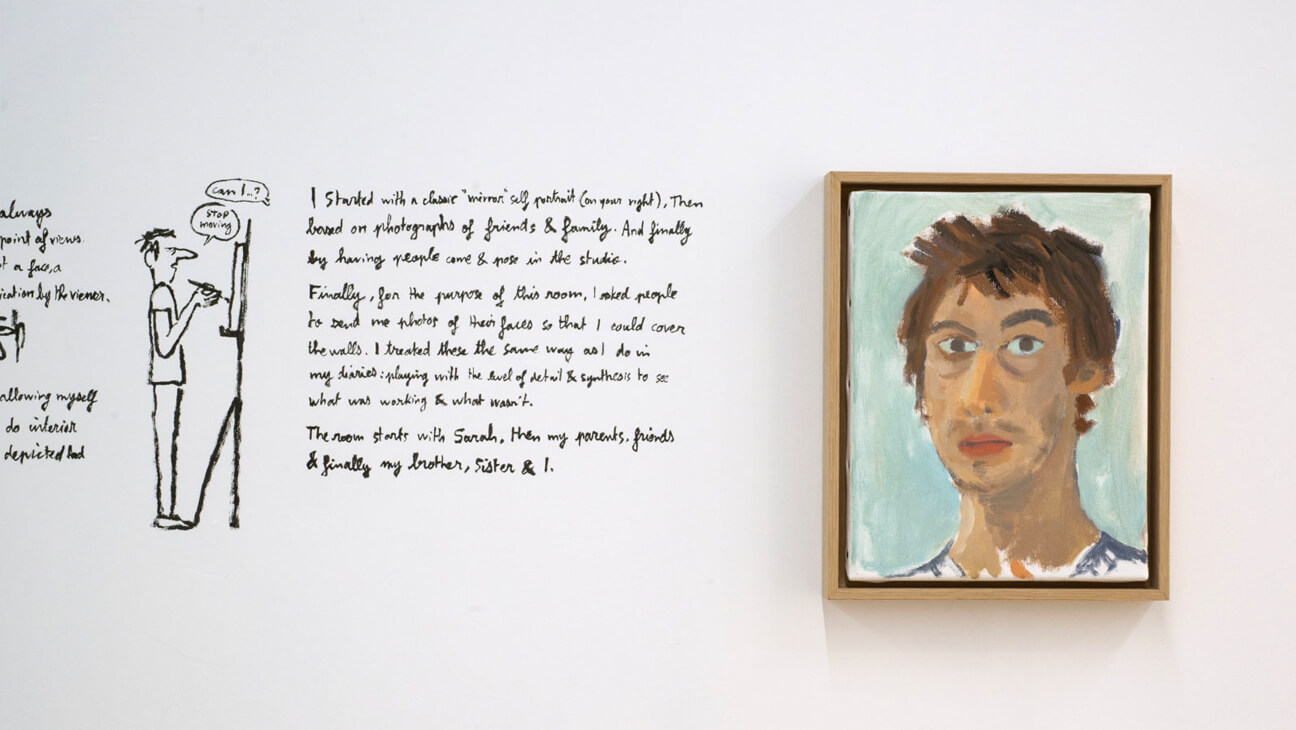 always
point of views.
a face, a
ication by the viewer.
allowing myself
do interior
depicted had
can I...?
STOP
moving
I started with a classic "mirror" self portrait (on your right). Then
based on photographs of friends & family. And finally
by having people come & pose in the studio.
Finally, for the purpose of this room, I asked people
to send me photos of their faces so that I could cover
the walls. I treated these the same way as I do in
my diaries: playing with the level of detail & synthesis to see
what was working & what wasn't.
The room starts with Sarah, then my parents, friends
& finally my brother, sister & I.